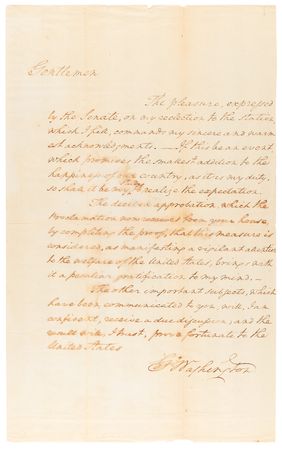 Gentlemen
The pleasure, expressed
by the Senate, on my reelection to the station
which I fill, commands my sincere and warm-
est acknowledgments. — If this be an event
which promises the smallest addition to the
happiness of our country, as it is my duty,
so shall it be my study to realize the expectation.
The decided approbation which the
Proclamation now receives from your house,
by completing the proof, that this measure is
considered, as manifesting a vigilant attention
to the welfare of the United States, brings with
it a peculiar gratification to my mind. —
The other important subjects, which
have been communicated to you, will, I am
confident, receive a due discussion, and the
result will, I trust, prove fortunate to the
United States
Go Washington